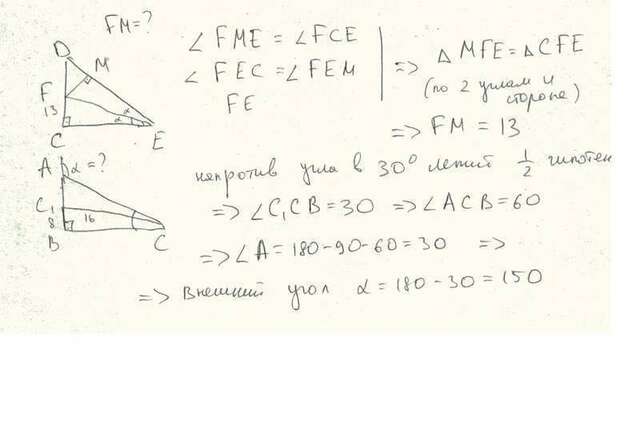 FM = ?
D
M
F
13
α
α
C
E
∠ FME = ∠FCE
∠ FEC = ∠FEM
FE
=> Δ MFE = Δ CFE
(по 2 углам и
стороне)
=> FM = 13
A
α = ?
C₁
8
16
B
C
напротив угла в 30° лежит 1/2 гипотен
=> ∠C₁CB = 30 => ∠ACB = 60
=> ∠A = 180 - 90 - 60 = 30 =>
=> Внешний угол α = 180 - 30 = 150